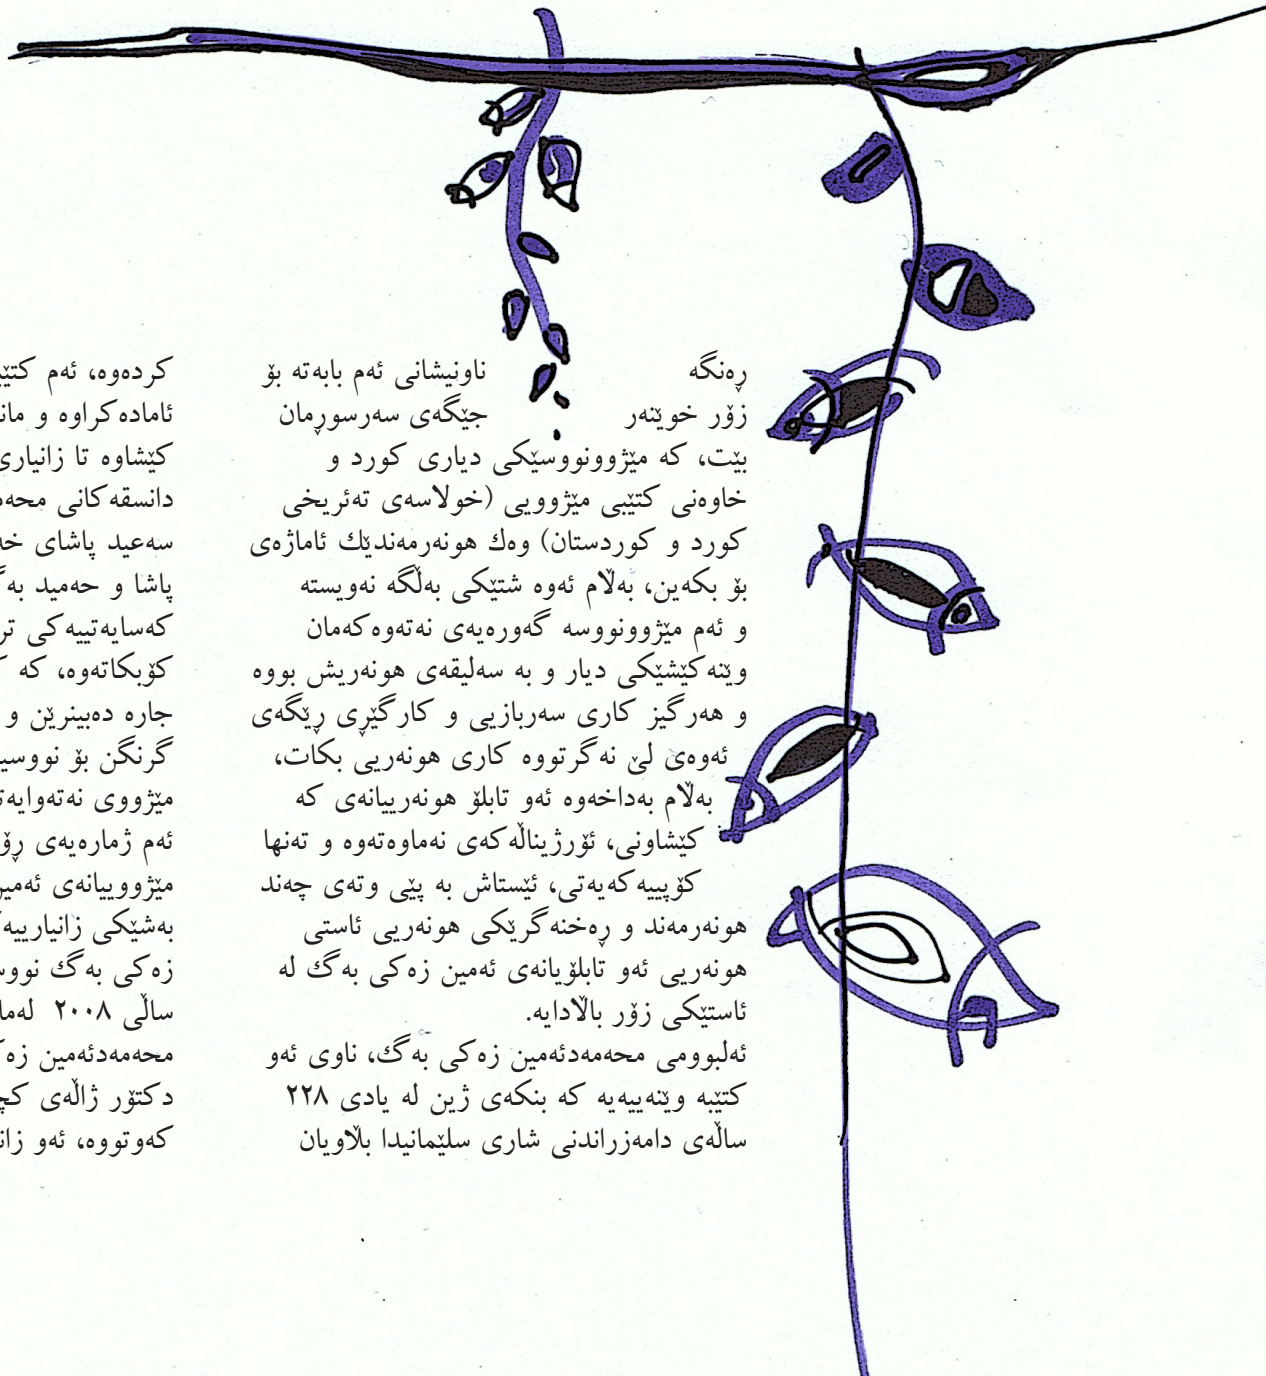 ڕەنگە ناونیشانی ئەم بابەتە بۆ
زۆر خوێنەر جێگەی سەرسوڕمان
بێت، کە مێژوونووسێکی دیاری کورد و
خاوەنی کتێبی مێژوویی (خولاسەی تەئریخی
کورد و کوردستان) وەك هونەرمەندێك ئاماژەی
بۆ بکەین، بەڵام ئەوە شتێکی بەڵگە نەویستە
و ئەم مێژوونووسە گەورەیەی نەتەوەکەمان
وێنەکێشێکی دیار و بە سەلیقەی هونەریش بووە
و هەرگیز کاری سەربازیی و کارگێڕی ڕێگەی
ئەوەی لێ نەگرتووە کاری هونەریی بکات،
بەڵام بەداخەوە ئەو تابلۆ هونەرییانەی کە
کێشاونی، ئۆرژیناڵەکەی نەماوەتەوە و تەنها
کۆپییەکەیەتی، ئێستاش بە پێی وتەی چەند
هونەرمەند و ڕەخنەگرێکی هونەریی ئاستی
هونەریی ئەو تابلۆیانەی ئەمین زەکی بەگ لە
ئاستێکی زۆر باڵادایە.
ئەلبوومی محەمەدئەمین زەکی بەگ، ناوی ئەو
کتێبە وێنەییەیە کە بنکەی ژین لە یادی ٢٢٨
ساڵەی دامەزراندنی شاری سلێمانیدا بڵاویان
کردەوە، ئەم
ئامادەکراوە و
کێشاوە تا زانیاری
دانسقەکانی
سەعید پاشای
پاشا و حەمید
کەسایەتییەکی
کۆبکاتەوە، کە
جارە دەبینرێن و
گرنگن بۆ
مێژووی
ئەم ژمارەیەی
مێژووییانەی
بەشێکی
زەکی بەگ
ساڵی ٢٠٠٨
محەمەدئەمین
دکتۆر ژاڵەی
کەوتووە، ئەو